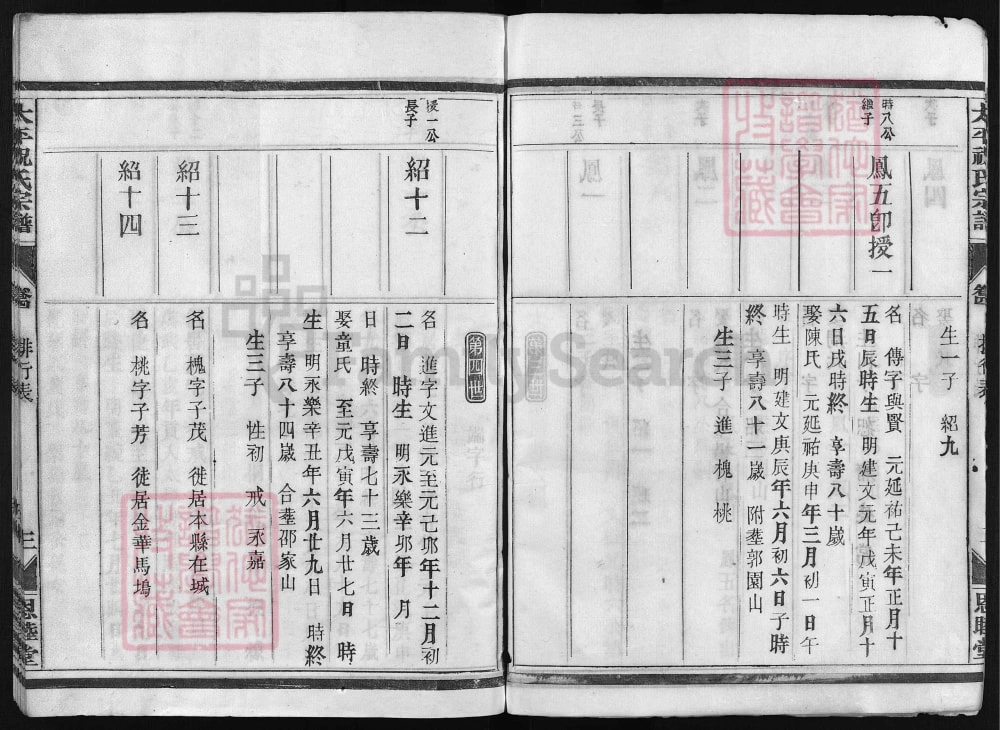 太平祝氏宗譜
思睦堂
生一子 紹九
時八公
繼子
鳳五卽授一
名 傳字與賢 元延祐己未年正月十
五日辰時生 明建文元年戊寅正月十
六日戌時終 享壽八十歲
娶陳氏 元延祐庚申年三月初一日午
時生 明建文庚辰年六月初六日子時
終 享壽八十一歲 附塟郭園山
生三子 進 槐 桃
第四世
授一公
長子
紹十二
名 進字文進元至元己邜年十二月初
二日 時生 明永樂辛邜年 月
日 時終 享壽七十三歲
娶童氏 至元戊寅年六月廿七日 時
生 明永樂辛丑年六月廿九日 時終
享壽八十四歲 合塟邵家山
生三子 性初 戒 永嘉
紹十三
名 槐字子茂 徙居本縣在城
紹十四
名 桃字子芳 徙居金華馬塢
太平祝氏宗譜
排行表
三
思睦堂
FamilySearch